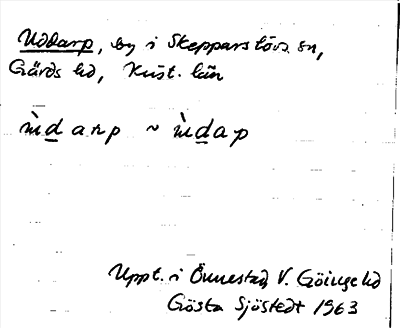 Uddarp, by i Skepparslövs sn,
Gärds hd, Krist. län
ùd̲arp ~ ùd̲ap
Uppt. i Önnestad, V. Göinge hd
Gösta Sjöstedt 1963